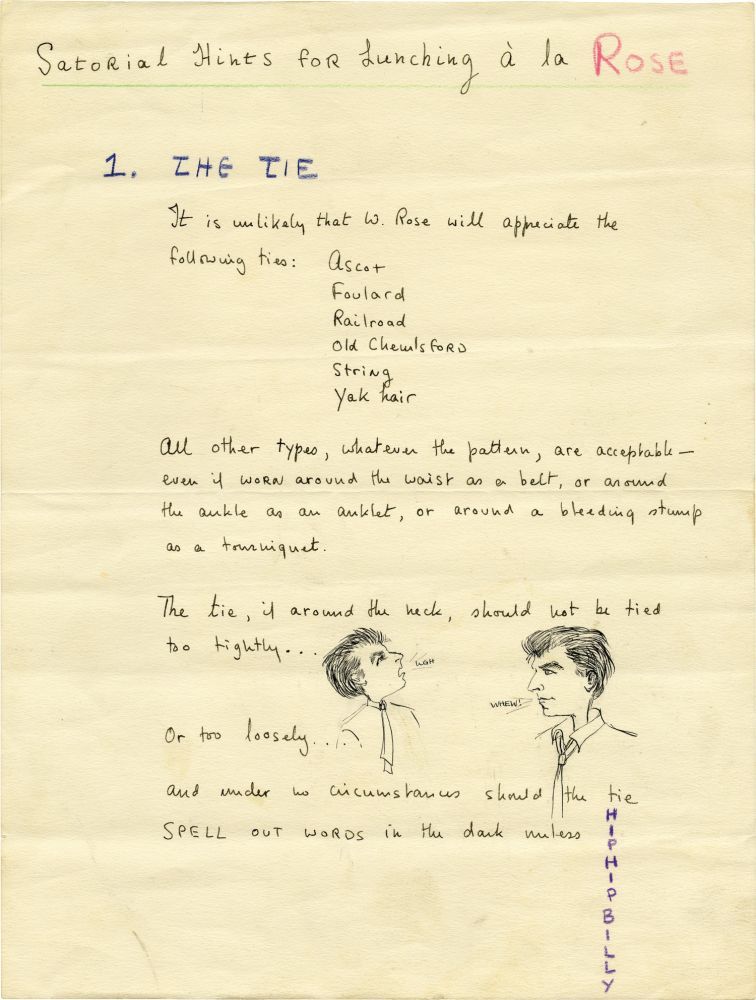 Satorial Hints for Lunching à la Rose
1. THE TIE
It is unlikely that W. Rose will appreciate the
following ties: Ascot
Foulard
Railroad
Old Chemlsford
String
Yak hair
All other types, whatever the pattern, are acceptable —
even if worn around the waist as a belt, or around
the ankle as an anklet, or around a bleeding stump
as a tourniquet.
The tie, if around the neck, should not be tied
too tightly...
UGH
WHEW!
Or too loosely...
and under no circumstances should the tie
SPELL OUT WORDS in the dark unless
HIP HIP BILLY